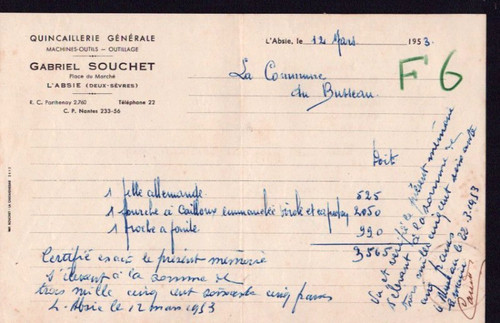 QUINCAILLERIE GÉNÉRALE
MACHINES-OUTILS — OUTILLAGE
GABRIEL SOUCHET
Place du Marché
L'ABSIE (DEUX-SÈVRES)
R. C. Parthenay 2.760 Téléphone 22
C. P. Nantes 233-56
L'Absie, le 12 Mars 1953.
F6
La Commune
du Busseau
Doit
1 pelle allemande 525
1 fourche à cailloux emmanchée virole et 2050
1 990
3565
Certifié exact le présent mémoire
S'élevant à la somme de
trois mille cinq cent soixante cinq francs
L'Absie le 12 mars 1953
Vu et vérifié le présent mémoire
s'élevant à la somme de
trois mille cinq cent soixante
cinq francs
1953